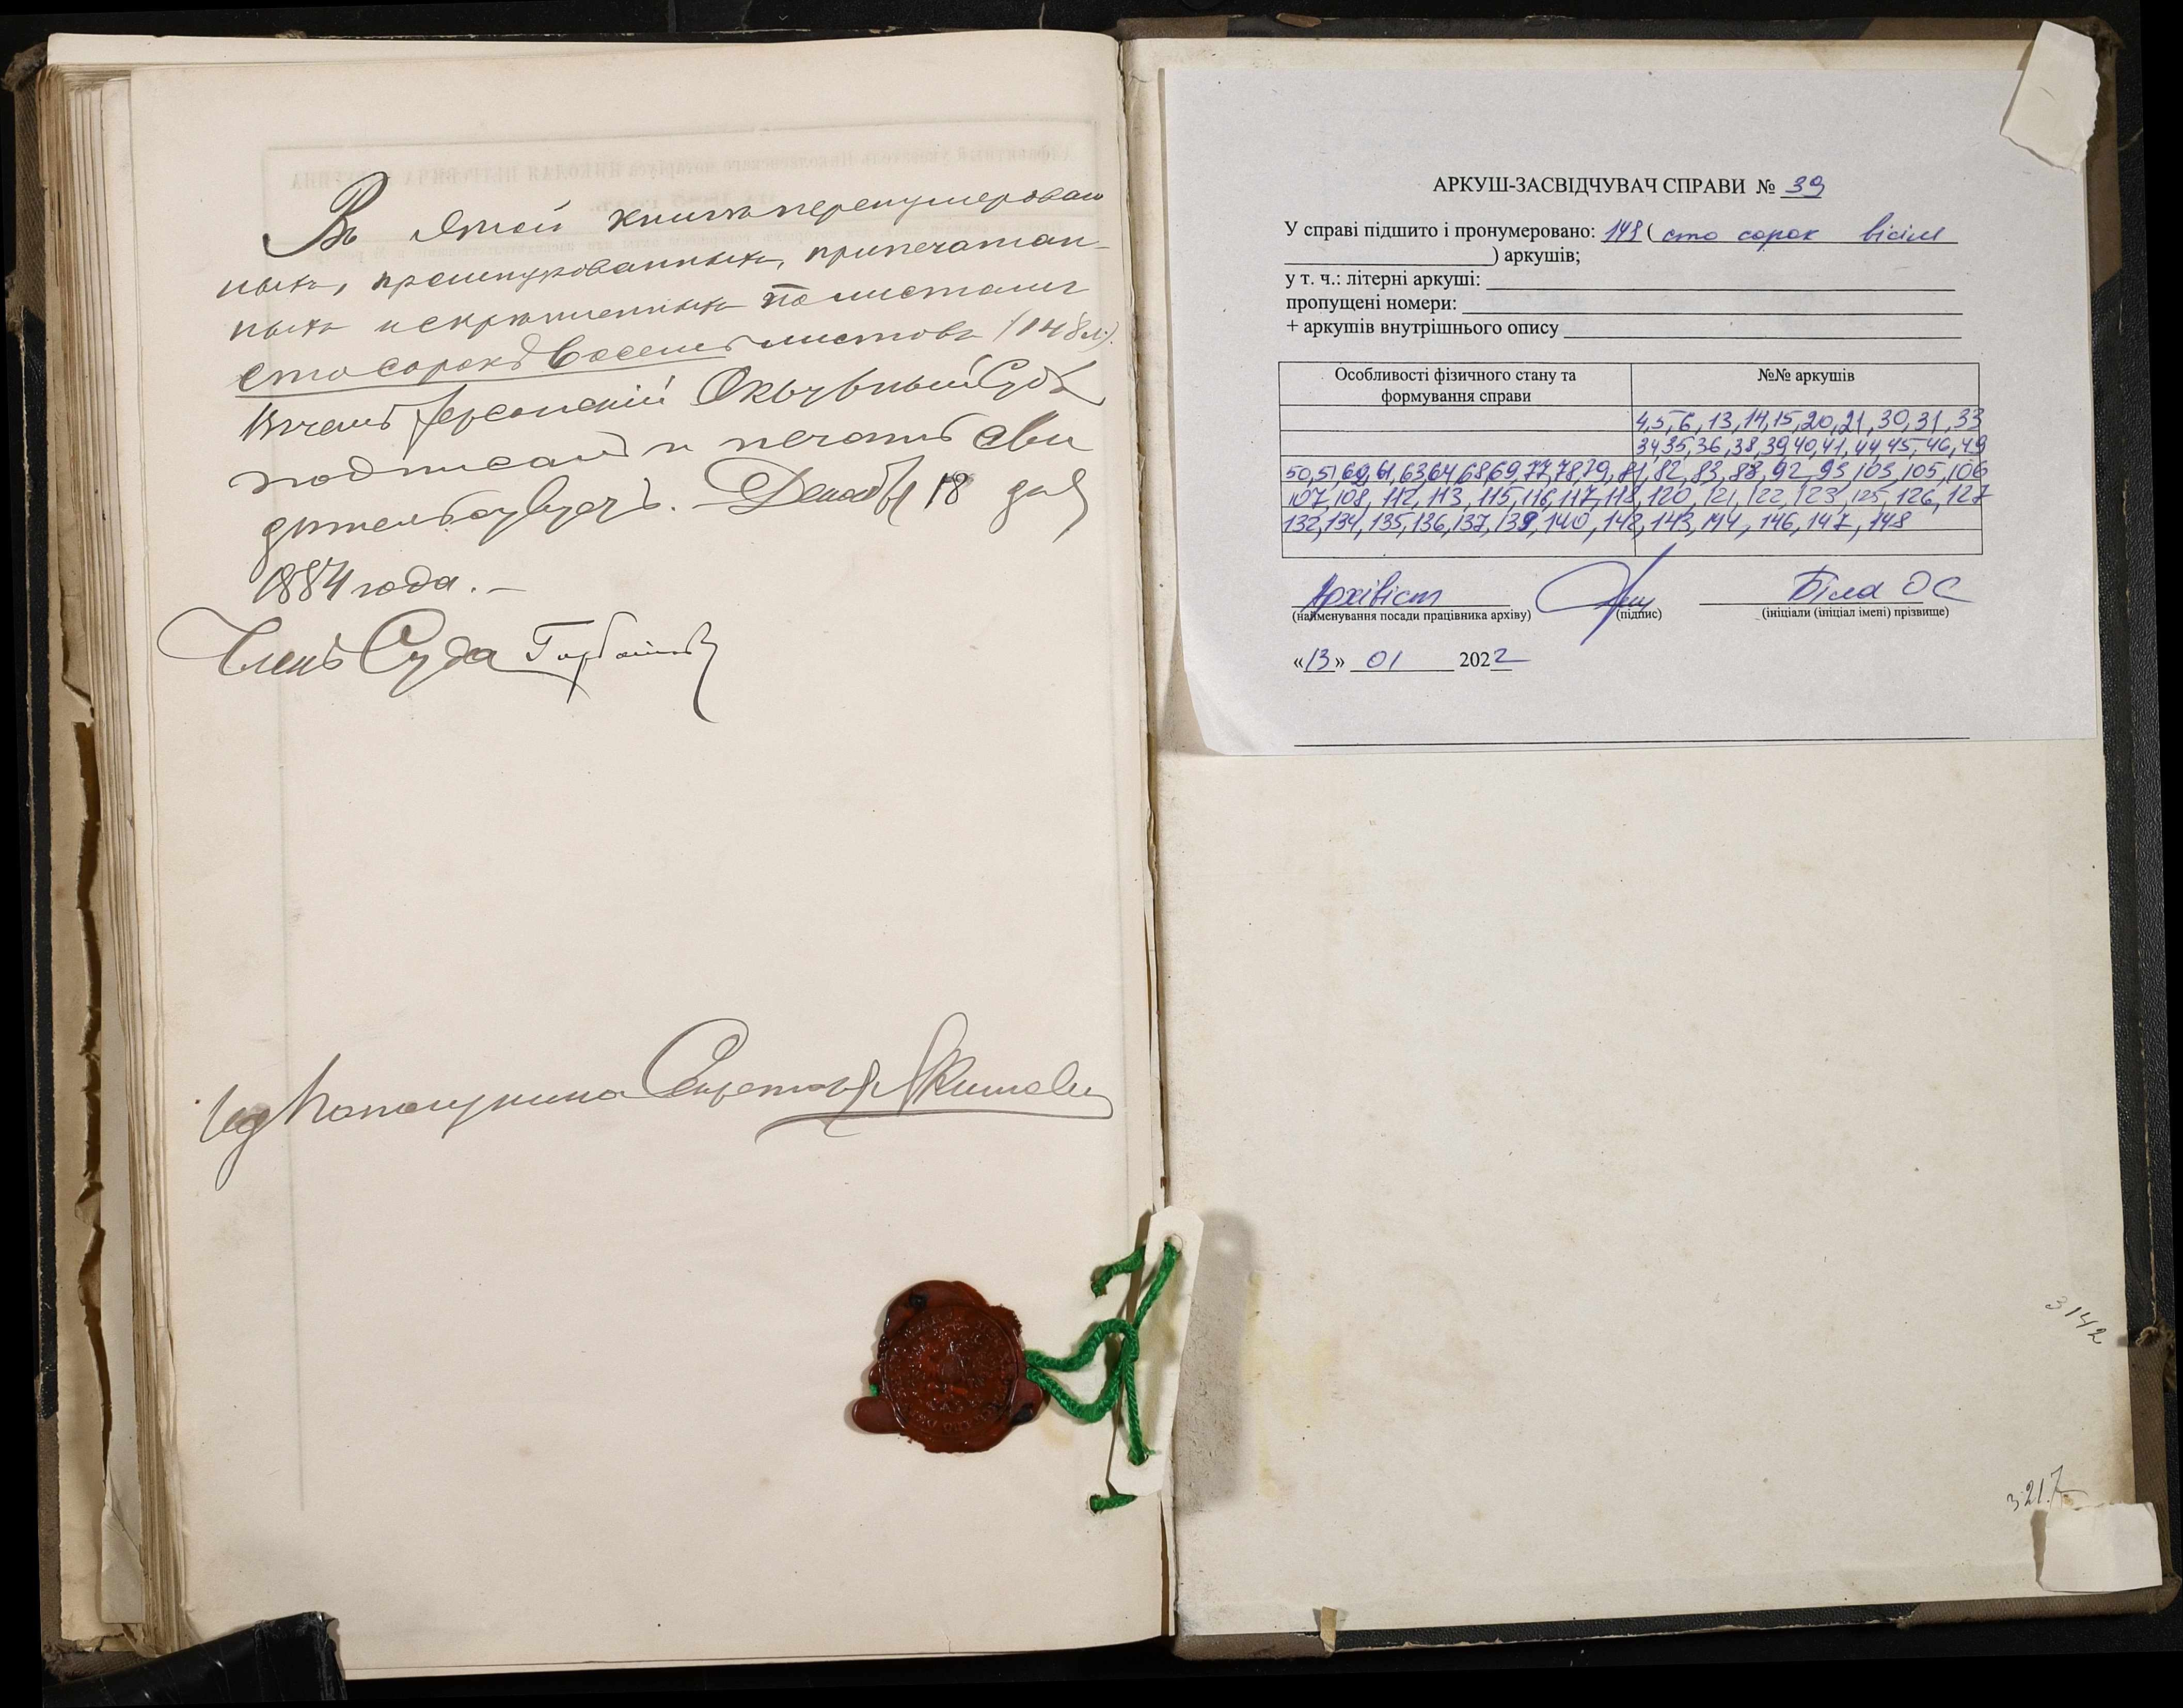 Въ этой книгѣ перенумерован
ныхъ, прошнурованныхъ, припечатан-
ныхъ и скрѣпленныхъ по листамъ
сто сорокъ восемь листовъ (148 л.).
въ чемъ Херсонскій Окружный Судъ
подписью и печатью сви
дѣтельствуетъ. Декабря 18 дня
1884 года. —
Членъ Суда
Помощника Секретаря
АРКУШ-ЗАСВІДЧУВАЧ СПРАВИ № 39
У справі підшито і пронумеровано: 148 ( сто сорок вісім
) аркушів;
у т. ч.: літерні аркуші:
пропущені номери:
+ аркушів внутрішнього опису
Особливості фізичного стану та формування справи
№№ аркушів
4, 5, 6, 13, 14, 15, 20, 21, 30, 31, 33
34 35, 36, 38, 39 40, 41, 44, 45, 46, 49
50, 51, 61, 63 64 68 69 77, 78, 79, 81, 82, 83, 88, 92, 93, 103, 105, 106
107, 108, 112, 113, 115, 116, 117, 118, 120, 121, 122, 123, 125, 126, 127
132, 134, 135, 136, 137, 139, 140, 142, 143, 144, 146, 147, 148
Архівіст Біла ОС
(найменування посади працівника архіву) (підпис) (ініціали (ініціал імені) прізвище)
«13» 01 2022
3142
3217